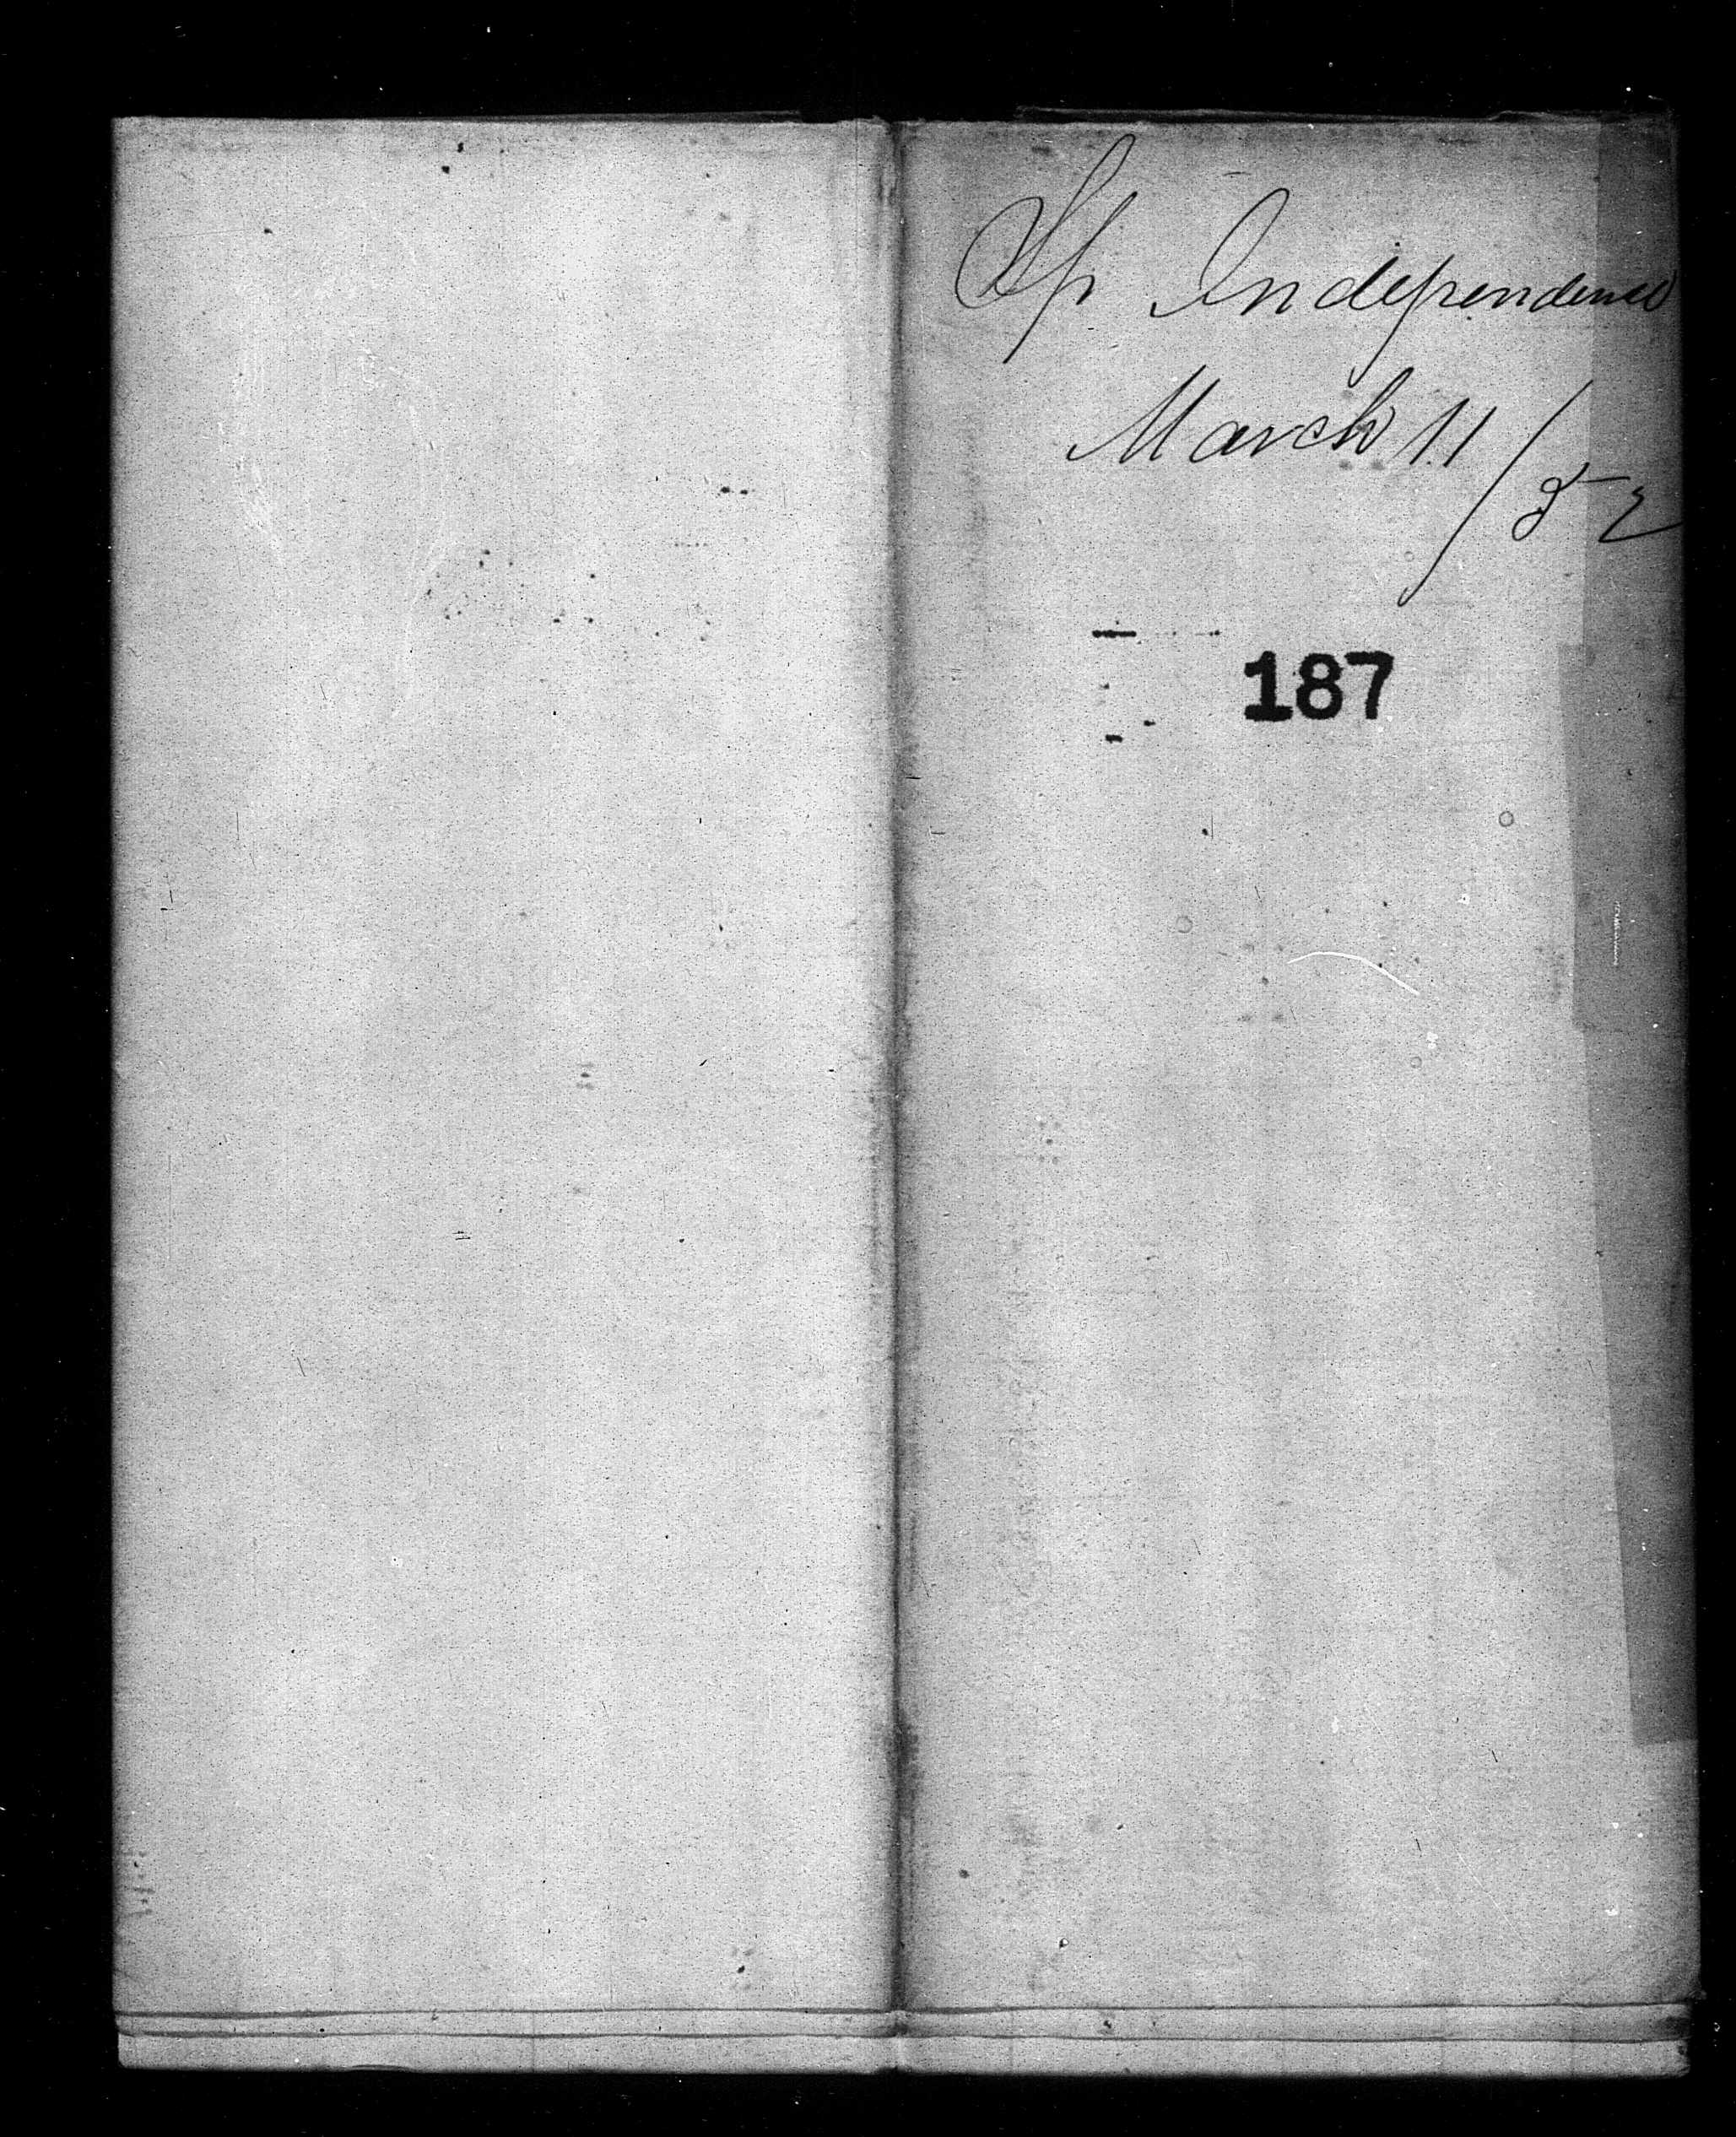 Sp Independence
March 11/52
187